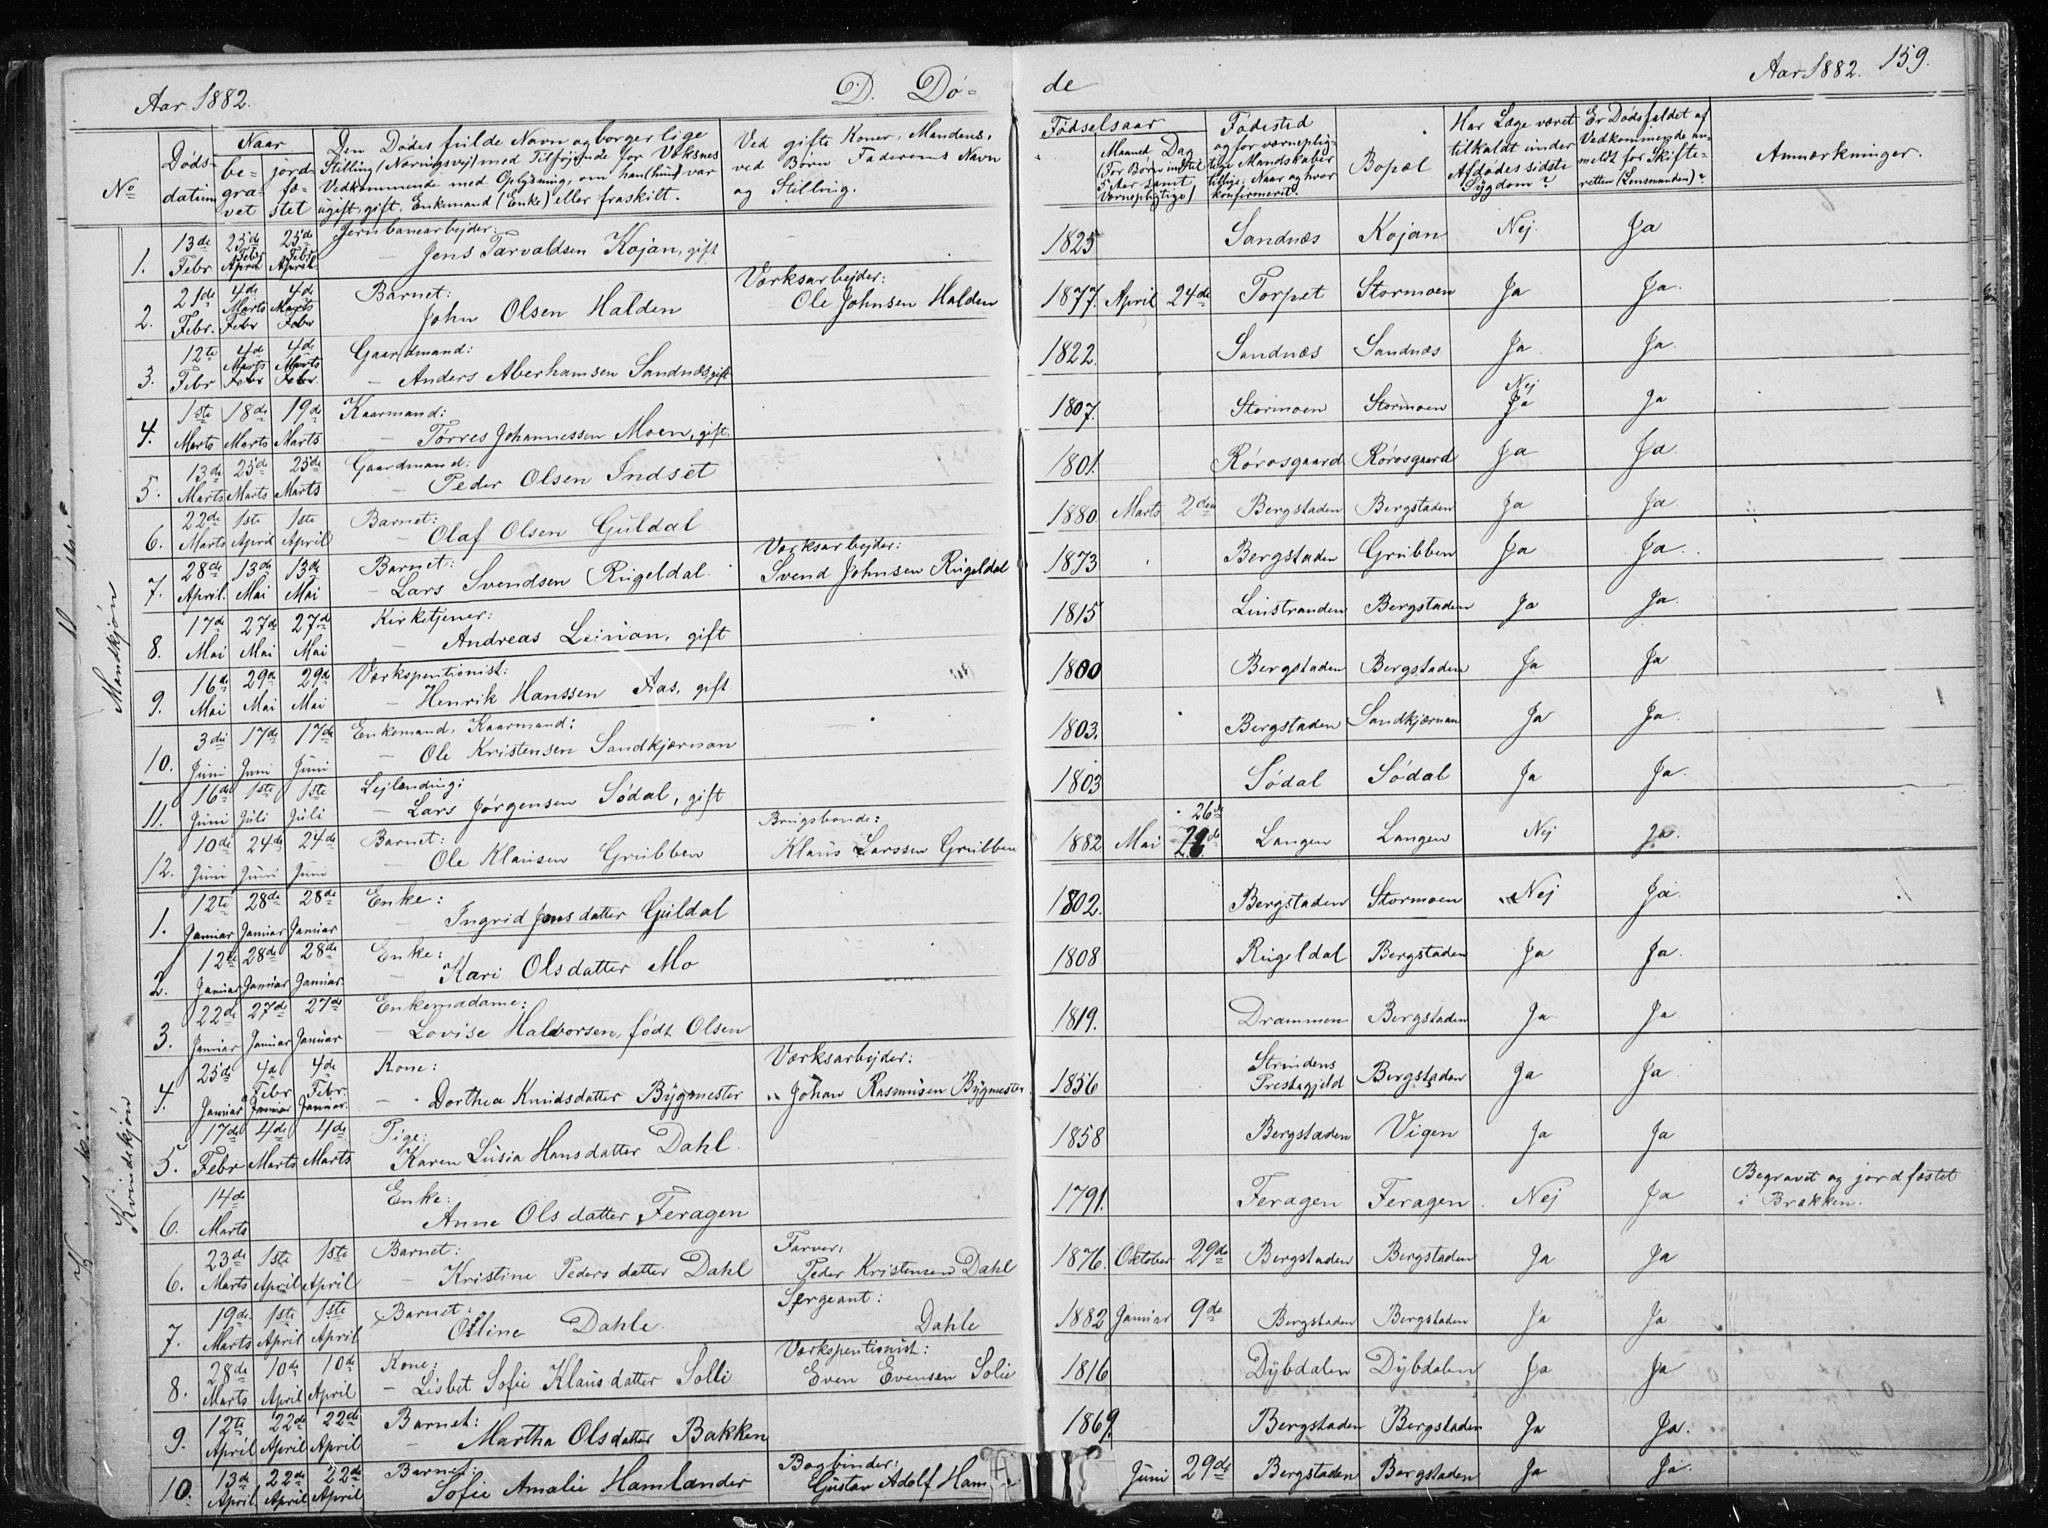 Aar 1882. D. Dø- de Aar 1882. 159.
No Dødsdatum Naar begravet jordfæstet Den Dødes fulde Navn og borgerlige Stilling (Næringsvej) med Tilføjende for Voksnes Vedkommende med Oplysning, om han (hun) var ugift, gift, Enkemand (Enke) eller fraskilt. Ved gifte Koner, Mandens, ved Børn Faderens Navn og Stilling. Fødselsaar Maaned Dag (For Børn indtil 5 Aar samt Værnepligtige) Fødested og for værnepligtige Mandskaber tillige, Naar og hvor konfirmeret. Bopæl Har Læge været tilkaldt under Afdødes sidste Sygdom? Er Dødsfaldet af Vedkommende anmeldt for Skifteretten (Lensmanden)? Anmærkninger.
Mandkjøn
1. 13de Febr 25de Febr April 25de Febr April Jernbanearbejder: Jens Tarvaldsen Kojan, gift 1825 Sandnæs Kojan Nej Ja
2. 21de Febr. 4de Marts Febr 4de Marts Febr Barnet: John Olsen Halden Værksarbejder: Ole Johnsen Halden 1877. April 24de Torpet Stormoen Ja Ja.
3. 12te Febr 4de Marts Febr 4de Marts Febr. Gaardmand: Anders Aberhamsen Sandnæs, gift 1822. Sandnæs Sandnæs Ja Ja.
4. 1ste Marts 18de Marts 19de Marts Kaarmand: Tørres Johannessen Moen, gift. 1807. Stormoen Stormoen Nej Ja Ja
5. 13de Marts 25de Marts 25de Marts Gaardmand: Peder Olsen Indset 1801. Rørosgaard Rørosgaard Ja Ja.
6. 22de Marts 1ste April 1ste April Barnet: Olaf Olsen Guldal 1880. Marts 2den Bergstaden Bergstaden Ja Ja.
7. 28de April. 13de Mai 13de Mai Barnet: Lars Svendsen Rugeldal. Værksarbejder: Svend Johnsen Rugeldal 1873 Bergstaden Grubben Ja Ja.
8. 17de Mai 27de Mai 27de Mai Kirketjener: Andreas Leinan, gift 1815 Linstranden Bergstaden Ja Ja.
9. 16de Mai 29de Mai 29de Mai Værkspentionist: Henrik Hanssen Aas, gift 1800 Bergstaden Bergstaden Ja Ja
10. 3die Juni 17de Juni 17de Juni Enkemand, Kaarmand: Ole Kristensen Sandkjærnan 1803. Bergstaden Sandkjærnan Ja Ja.
11. 16de Juni 1ste Juli 1ste Juli Lejlending: Lars Jørgensen Sødal, gift 1803 Sødal Sødal Ja Ja.
12. 10de Juni 24de Juni 24de Juni Barnet: Ole Klausen Grubben Brugsbonde: Klaus Larssen Grubben 1882 Mai 26de Langen Langen Nej Ja.
Kvindekjøn
1. 12te Januar 28de Januar 28de Januar Enke: Ingrid Jonsdatter Guldal 1802. Bergstaden Stormoen Nej Ja.
2. 12te Januar 28de Januar 28de Januar Enke: Kari Olsdatter Mo 1808 Rugeldal Bergstaden Ja Ja.
3. 22de Januar 27de Januar 27de Januar Enkemadame: Lovise Halvorsen, født Olsen 1819. Drammen Bergstaden Ja Ja
4. 25de Januar 4de Febr Januar 4de Febr. Januar. Kone: Dorthea Knudsdatter Bygmester Værksarbejder: Johan Rasmusen Bygmester 1856 Strindens Prestegjeld Bergstaden Ja Ja.
5. 17de Febr 4de Marts 4de Marts Pige: Karen Lusia Hansdatter Dahl. 1858 Bergstaden Vigen Ja Ja
6. 14de Marts Enke: Anne Olsdatter Feragen 1791. Feragen Feragen. Nej Ja Begravet og jordfæstet i Brækken.
6. 23de Marts 1ste April 1ste April Barnet: Kristine Pedersdatter Dahl Farver: Peder Kristensen Dahl 1876. Oktober 29de Bergstaden Bergstaden Ja Ja
7. 19de Marts 1ste April 1ste April Barnet: Otline Dahle. Sergeant: Dahle 1882 Januar 9de Bergstaden Bergstaden Ja Ja
8. 28de Marts 10de April 10de April Kone: Lisbet Sofie Klausdatter Solli Værkspentionist: Even Evensen Solie 1816 Dybdalen Dybdalen Ja Ja
9. 12te April 22de April 22de April Barnet: Martha Olsdatter Bakken 1869. Bergstaden Bergstaden Ja Ja.
10. 13de April 22de April 22de April Barnet: Sofie Amalie Hamlander Bogbinder: Gustav Adolf Ham Juni 29de Bergstaden Bergstaden Ja Ja.